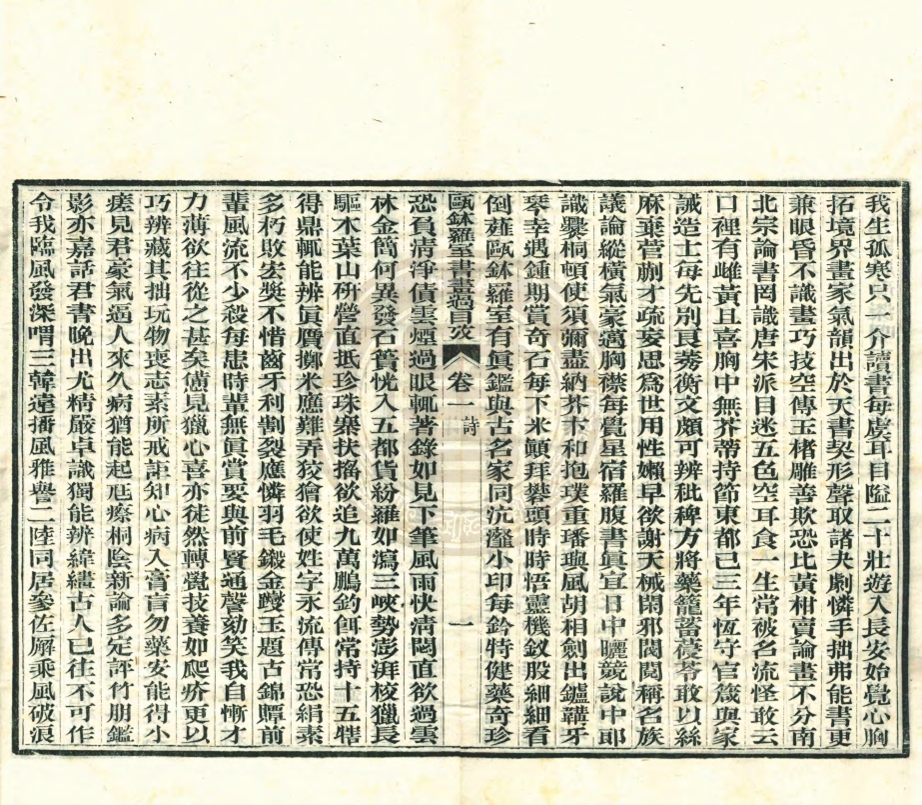 我生孤寒只一介讀書每虞耳目隘二十壯遊入長安始覺心胸
拓境界畫家氣韻出於天書契形聲取諸夬劇憐手拙弗能書更
兼眼昏不識畫巧技空傳玉楮雕善欺恐比黃柑賣論畫不分南
北宗論書罔識唐宋派目迷五色空耳食一生常被名流怪敢云
口裡有雌黃且喜胸中無芥蒂持節東都已三年恆守官箴與家
誡造士每先別良莠衡文頗可辨秕稗方將藥籠蓄蓡苓敢以絲
麻棄菅蒯才疏妄思爲世用性嬾早欲謝天械閑邪閣閱稱名族
議論縱橫氣豪邁胸襟每覺星宿羅腹書眞宜日中曬競說中郎
識爨桐頓使須彌盡納芥卞和抱璞重璠璵風胡相劍出鑪韛牙
琴幸遇鍾期賞奇石每下米顛拜攀頭時時悟靈機釵股細細看
倒薤甌鉢羅室有眞鑑與古名家同沆瀣小印每鈐特健藥奇珍
甌鉢羅室書畫過目攷 卷一 詩 一
恐負清淨債雲煙過眼輒著錄如見下筆風雨快清閟直欲過雲
林金簡何異發石簣恍入五都貨紛羅如瀉三峽勢澎湃校獵長
驅木葉山硏營直抵珍珠寨扶搖欲追九萬鵬釣餌常持十五犗
得鼎輒能辨眞贗擲米應難弄狡獪欲使姓字永流傳常恐絹素
多朽敗宏獎不惜齒牙利剸裂應憐羽毛鎩金躞玉題古錦贉前
輩風流不少殺每恚時輩無眞賞要與前賢通謦欬笑我自慚才
力薄欲往從之甚矣憊見獵心喜亦徒然轉覺技養如爬疥更以
巧辨藏其拙玩物喪志素所戒詎知心病入膏肓勿藥安能得小
瘥見君豪氣逼人來久病猶能起尫瘵桐陰新論多定評竹朋鑑
影亦嘉話君書晚出尤精嚴卓識獨能辨緯繣古人已往不可作
令我臨風發深喟三韓遠播風雅譽二陸同居參佐廨乘風破浪